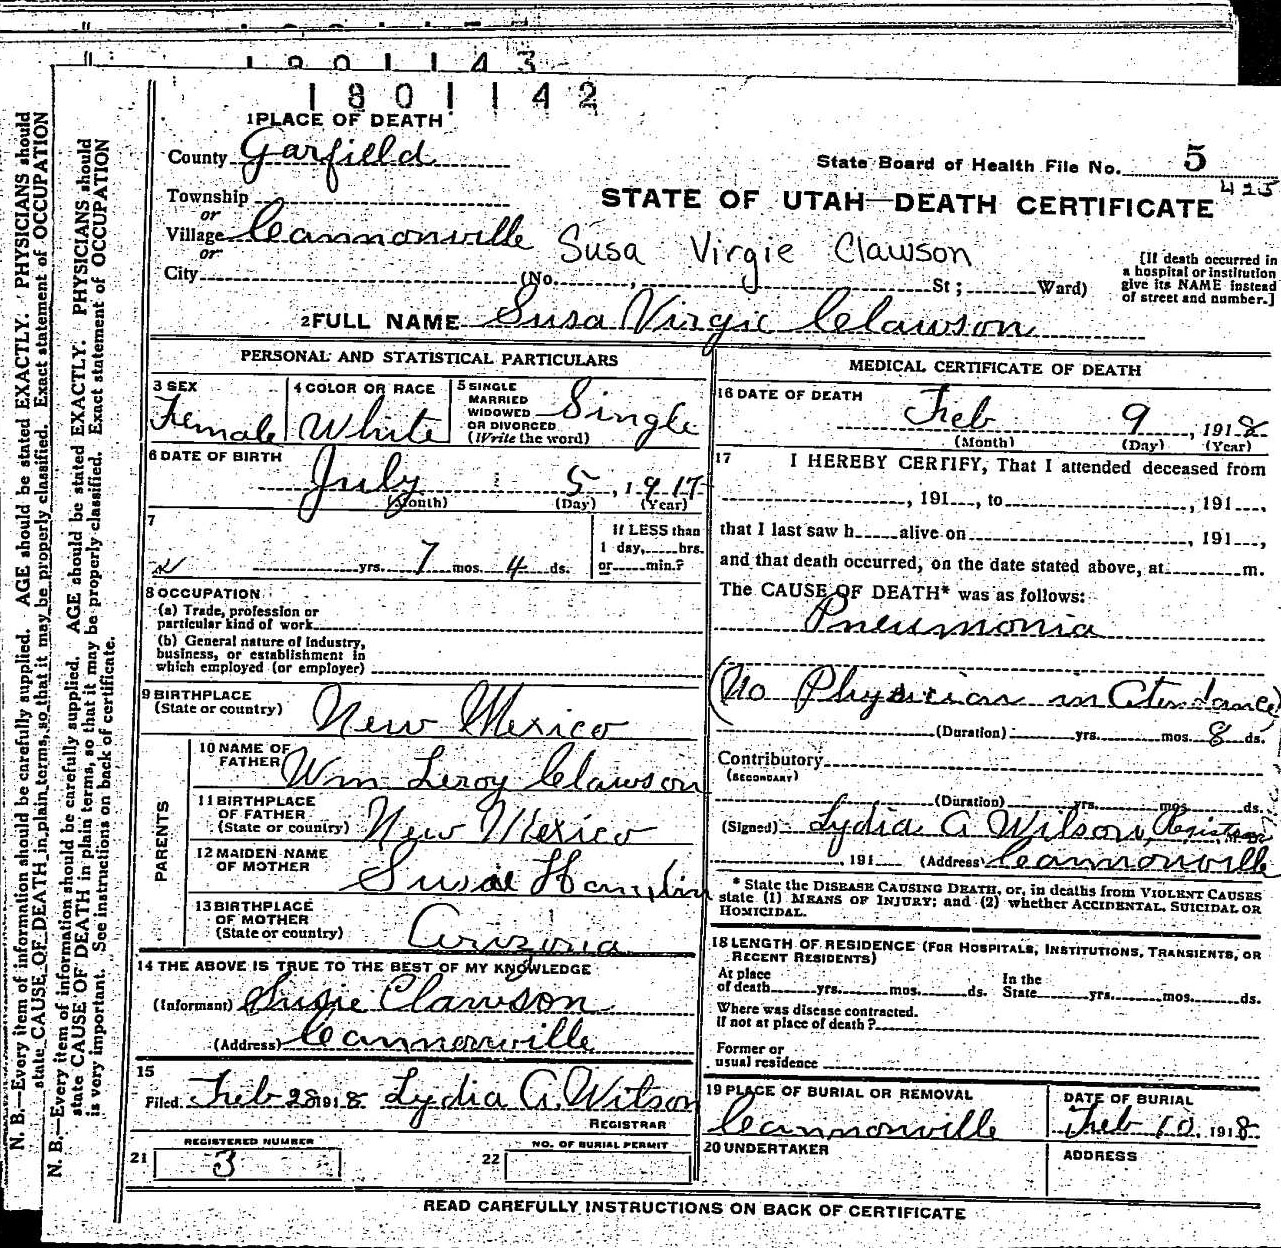 1801143
1801142
1 PLACE OF DEATH
County Garfield
State Board of Health File No. 5
425
Township
or
STATE OF UTAH—DEATH CERTIFICATE
Village Cannonville Susa Virgie Clawson
or
City (No. , St; Ward)
[If death occurred in
a hospital or institution
give its NAME instead
of street and number.]
2 FULL NAME Susa Virgie Clawson
PERSONAL AND STATISTICAL PARTICULARS
3 SEX
Female
4 COLOR OR RACE
White
5 SINGLE
MARRIED
WIDOWED
OR DIVORCED
(Write the word)
Single
6 DATE OF BIRTH
July 5, 1917
(Month) (Day) (Year)
7
yrs. 7 mos. 4 ds.
If LESS than
1 day, hrs.
or min.?
8 OCCUPATION
(a) Trade, profession or
particular kind of work
(b) General nature of industry,
business, or establishment in
which employed (or employer)
9 BIRTHPLACE
(State or country) New Mexico
PARENTS
10 NAME OF
FATHER Wm Leroy Clawson
11 BIRTHPLACE
OF FATHER
(State or country) New Mexico
12 MAIDEN NAME
OF MOTHER Susie Hamplin
13 BIRTHPLACE
OF MOTHER
(State or country) Arizona
14 THE ABOVE IS TRUE TO THE BEST OF MY KNOWLEDGE
(Informant) Susie Clawson
(Address) Cannonville
15
Filed Feb 28 1918 Lydia A. Wilson
REGISTRAR
REGISTERED NUMBER
21 3
NO. OF BURIAL PERMIT
22
MEDICAL CERTIFICATE OF DEATH
16 DATE OF DEATH
Feb 9, 1918
(Month) (Day) (Year)
17 I HEREBY CERTIFY, That I attended deceased from
, 191 , to , 191 ,
that I last saw h alive on , 191 ,
and that death occurred, on the date stated above, at m.
The CAUSE OF DEATH* was as follows:
Pneumonia
(No Physician in Atendance)
(Duration) yrs. mos. 8 ds.
Contributory
(SECONDARY)
(Duration) yrs. mos. ds.
(Signed) Lydia A Wilson, Registrar
, 191 (Address) Cannonville
* State the DISEASE CAUSING DEATH, or, in deaths from VIOLENT CAUSES
state (1) MEANS OF INJURY; and (2) whether ACCIDENTAL, SUICIDAL OR
HOMICIDAL.
18 LENGTH OF RESIDENCE (FOR HOSPITALS, INSTITUTIONS, TRANSIENTS, OR
RECENT RESIDENTS)
At place
of death yrs. mos. ds.
In the
State yrs. mos. ds.
Where was disease contracted.
if not at place of death?
Former or
usual residence
19 PLACE OF BURIAL OR REMOVAL
Cannonville
DATE OF BURIAL
Feb 10, 1918
20 UNDERTAKER
ADDRESS
READ CAREFULLY INSTRUCTIONS ON BACK OF CERTIFICATE
N. B.—Every item of information should be carefully supplied. AGE should be stated EXACTLY. PHYSICIANS should
state CAUSE OF DEATH in plain terms, so that it may be properly classified. Exact statement of OCCUPATION
N. B.—Every item of information should be carefully supplied. AGE should be stated EXACTLY. PHYSICIANS should
state CAUSE OF DEATH in plain terms, so that it may be properly classified. Exact statement of OCCUPATION
is very important. See instructions on back of certificate.